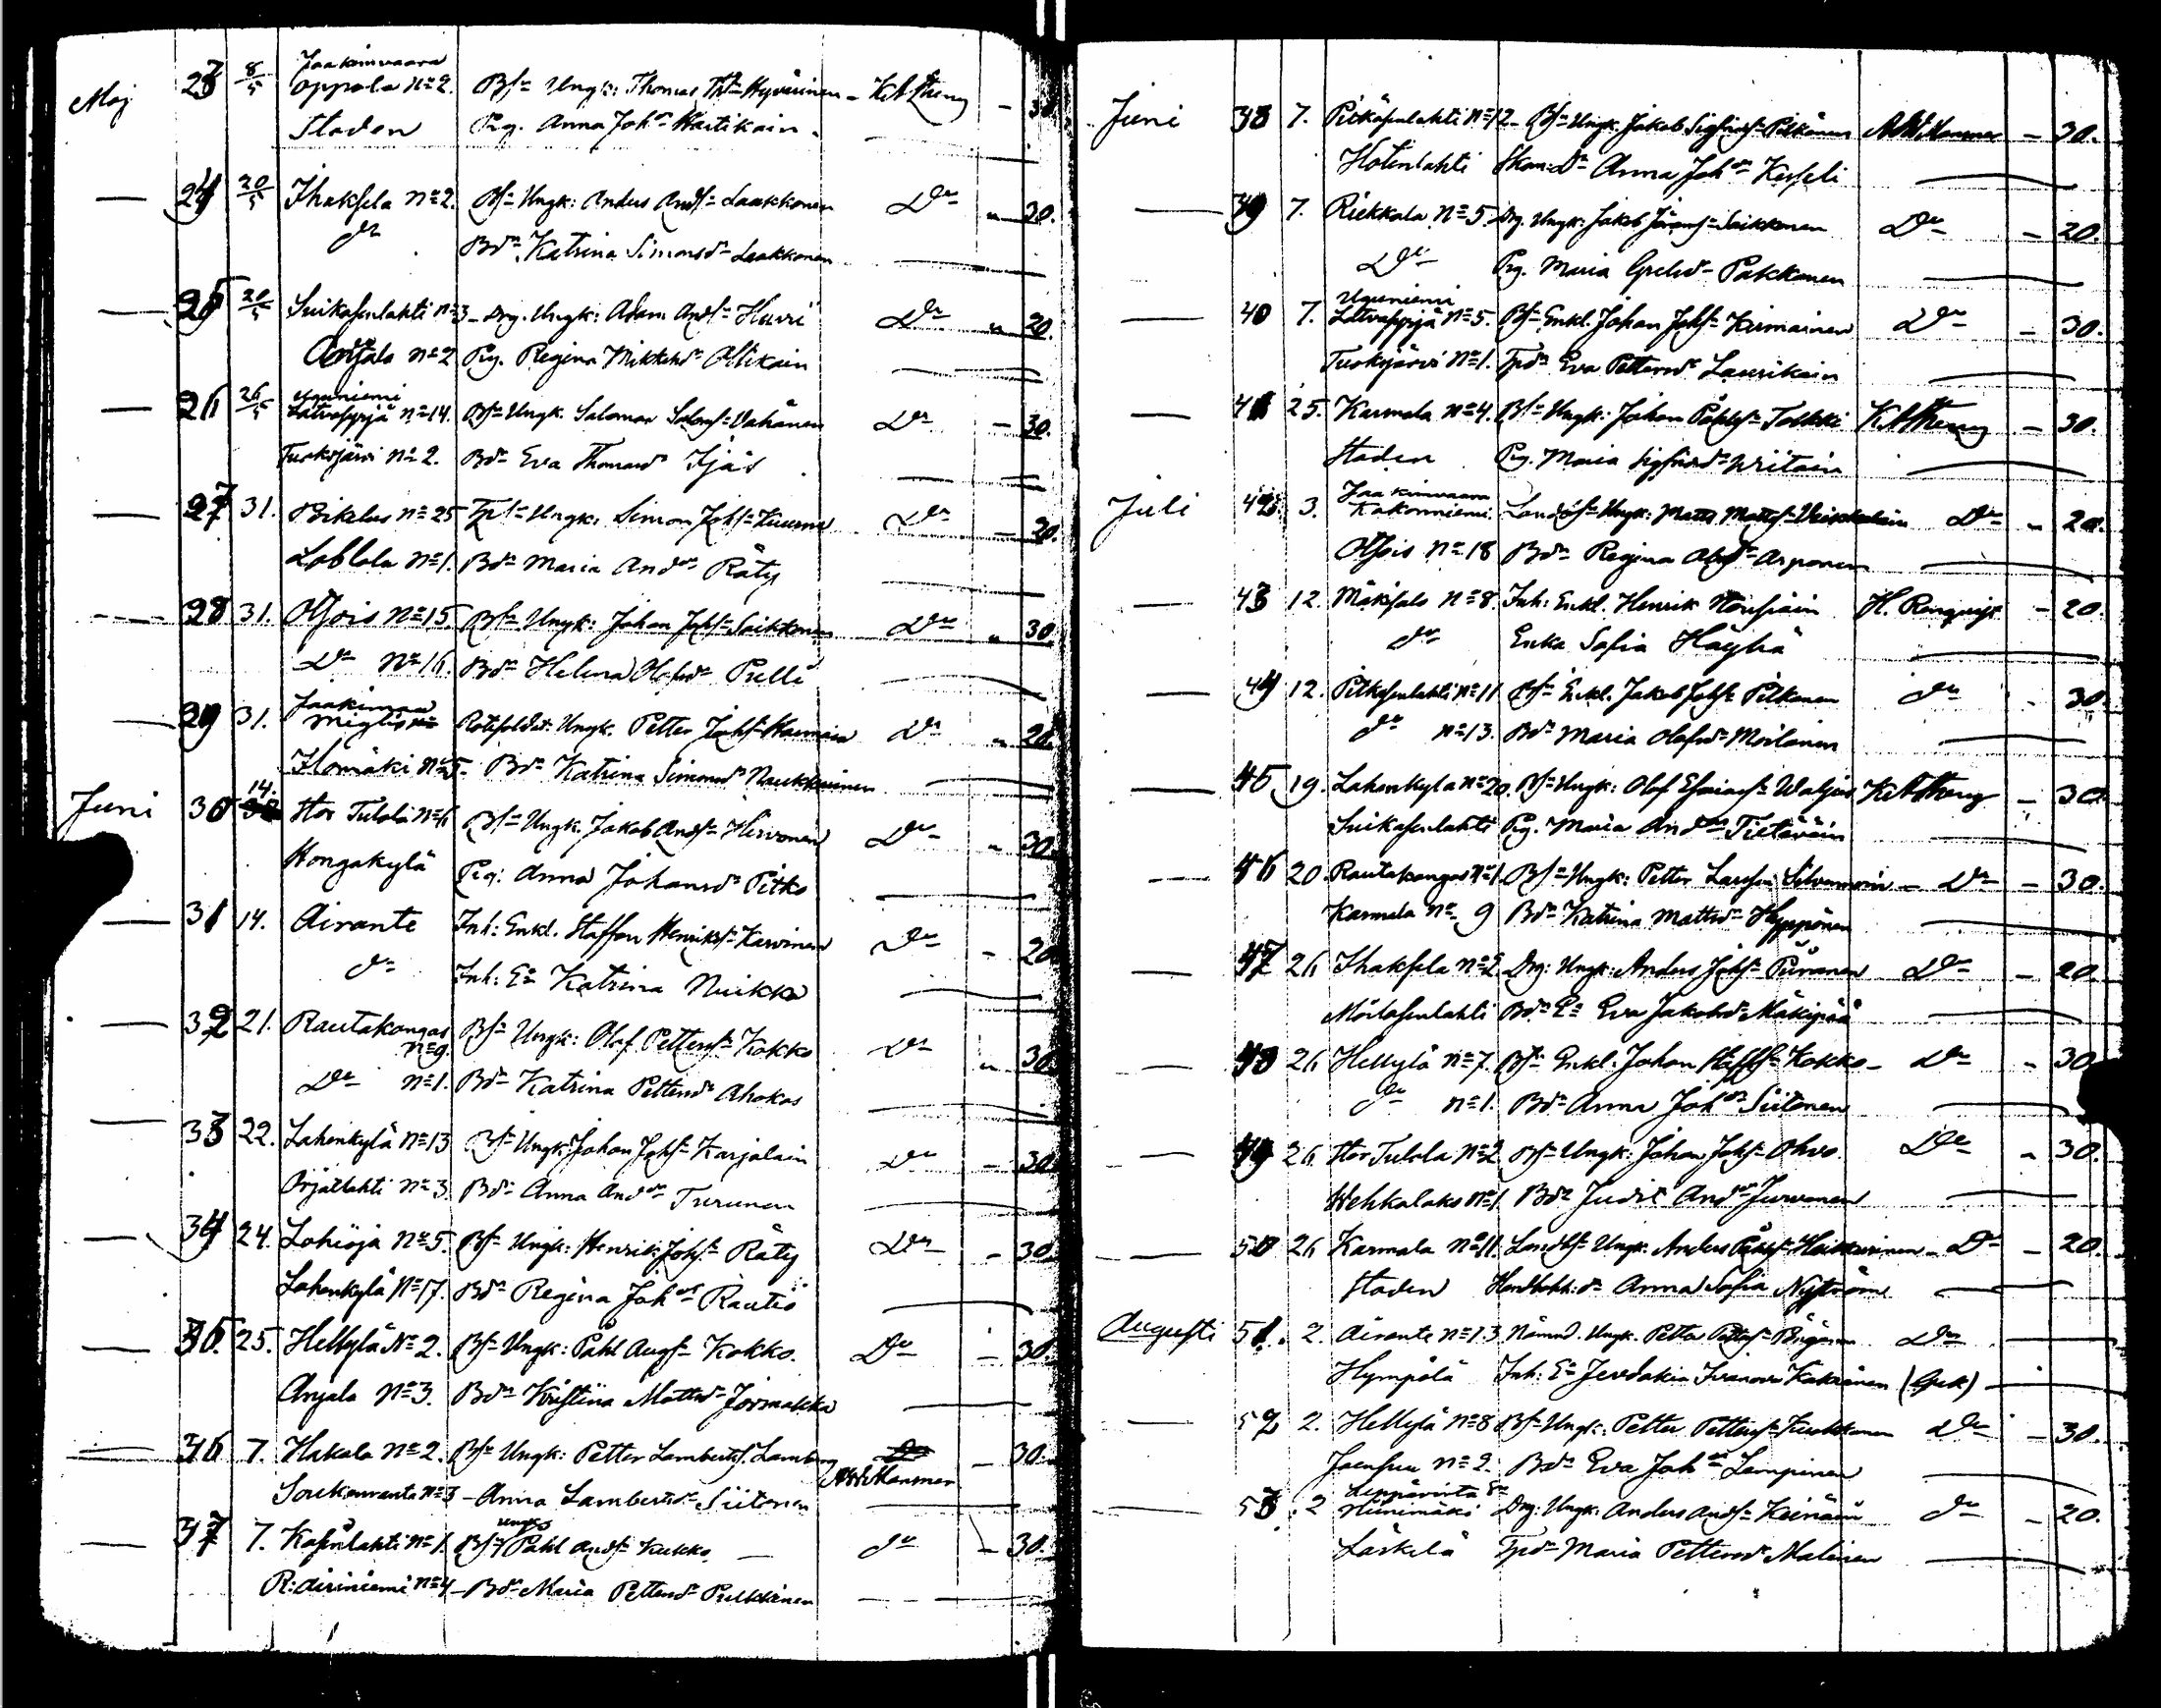 Jaakimvaara
Maj 23 8/5 Oppola No 2. Bs. Ungk: Thomas Ths. Hyvärinen - K A Theng - 30.
Staden Pig. Anna Johdr Wartikain -
— 24 20/5 Ihaksela No 2. Bs. Ungk: Anders Ands. Laakkonen Do " 20.
do Bdr Katrina Simonsdr Laakkonen
— 25 20/5 Suikasenlahti No 3 - Drg. Ungk: Adam Ands. Huvi Do " 20.
Anjala No 2 Pig. Regina Mikkelsdr Ollikain
Uguniemi
— 26 26/5 Latvasyrjä No 14. Bs. Ungk. Salomon Saloms. Vahänen Do - 30.
Tuoksjärvi No 2. Bdr Eva Thomasdr Tjäs
— 27 31. Biklus No 25 Tps. Ungk: Simon Johs. Kuurne Do - 20.
Lablola No 1. Bdr Maria Anddr Räty
— 28 31. Otsois No 15. Bs. Ungk: Johan Johs. Saikkonen Do " 30.
Do No 16. Bdr Helena Olofsdr Pulli
Jaakimvaara
— 29 31. Miglis No Rotesoldat. Ungk. Petter Johs. Do " 20.
Ilomäki No 5. Bdr Katrina Simonsdr Naukkarinen
14.
Juni 30 Stor Tulola No 6 Bs. Ungk. Jakob Ands. Hirvonen Do " 30.
Hongakylä Pig: Anna Johansdr Pitko
— 31 14. Airante Inh: Enkl. Staffan Henriks. Karvinen Do - 20
do Inh: Ea Katrina Nuikka
— 32 21. Rautakangas Bs. Ungk: Olof Petters. Kokko Do " 30.
No 9.
Do No 1. Bdr Katrina Pettersdr Ahokas
— 33 22. Lahenkylä No 13 Bs. Ungk: Johan Johs. Karjalain Do - 30.
Orjatlahti No 3. Bdr Anna Anddr Turunen
— 34 24. Lohioja No 5. Bs. Ungk: Henrik Johs. Räty Do - 30.
Lahenkylä No 17. Bdr Regina Johdr Rautio
— 35. 25. Hellylä No 2. Bs. Ungk: Påhl Augs. Kokko. Do - 30.
Anjala No 3. Bdr Kristiina Mattsdr Jormakka
— 36 7. Hakala No 2. Bs. Ungk: Petter Lamberts. Lamberg Do - 30.
A W Mansner
Soukanranta No 3 - Anna Lambertsdr Siitonen
Ungk
— 37 7. Kasinlahti No 1. Bs. Påhl Ands. Kukko — do - 30.
R: Airiniemi No 4 - Bdr Maria Pettersdr Pulkkinen
Juni 38 7. Pitkäsenlahti No 12 - Bs. Ungk. Jakob Sigfrids. Pitkänen A W Mansner - 30.
Hotinlahti Skom: Dr Anna Johdr Kesseli
— 39 7. Riekkala No 5. Drg. Ungk: Jakob Görans. Saikkonen Do - 20.
Do Pig. Maria Grelsdr Pakkanen
Uguniemi
— 40 7. Latvasyrjä No 5. Bs. Enkl. Johan Johs. Kirmainen Do - 30.
Tuoksjärvi No 1. Tpdr Eva Pettersdr Laurikain
— 41 25. Karmala No 4. Bs. Ungk: Johan Påhls. Tolkki K A Theng - 30.
Staden Pig. Maria Sigfridsdr
Jaakimvaara
Juli 42 3. Kakonniemi. Ungk: Matts Matts. Do " 20.
Otsois No 18 Bdr Regina Olofsdr Arponen
— 43 12. Mäksalo No 8. Inh: Enkl. Henrik H. Renqvist - 20.
do Enka Safia Häyhä
— 44 12. Pitkäsenlahti No 11 Bs. Enkl. Jakob Johs. Pitkänen do - 30.
do No 13. Bdr Maria Olofsdr Moilanen
— 45 19. Lahenkyla No 20. Bs. Ungk: Olof Esaias. K A Theng - 30.
Suikasenlahti Pig. Maria Anddr Tietäväin
— 46 20. Rautakangas No 1. Bs. Ungk: Petter Larsson - Do - 30.
Karmela No 9 Bdr Katrina Mattsdr Hyppönen
— 47 26 Ihaksela No 2 Drg: Ungk: Anders Johs. Piiranen Do - 20.
Mörtäsenlahti Bdr Ea Eva Jakobsdr Mäkipää
— 48 26 Hellylä No 7. Bs. Enkl. Johan Staffs. Kokko - Do - 30
do No 1. Bdr Anna Johdr Siitonen
— 49 26. Stor Tulola No 2 Bs. Ungk: Johan Johs. Ohvo. Do " 30.
Wehkalaks No 1. Bdr Judit Anddr Jurvanen
— 50 26 Karmala No 11. Landbs. Ungk. Anders Påhls. - Do - 20.
Staden Anna Sofia Nyström
Augusti 51. 2. Airante No 13 Nämnd. Ungk. Petter Petters. Do
Hympölä Inh: Ea Jevdakia Ivanova Kakkinen (Grek)
— 52 2. Hellylä No 8 Bs. Ungk: Petter Petters. Kuokkanen Do - 30.
Joensuu No 2. Bdr Eva Johdr Lampinen
Leppävirta Sn
53 2 Niinimäki Drg. Ungk. Anders Ands. Keinänen do - 20.
Läskelä Tpdr Maria Pettersdr Malinen